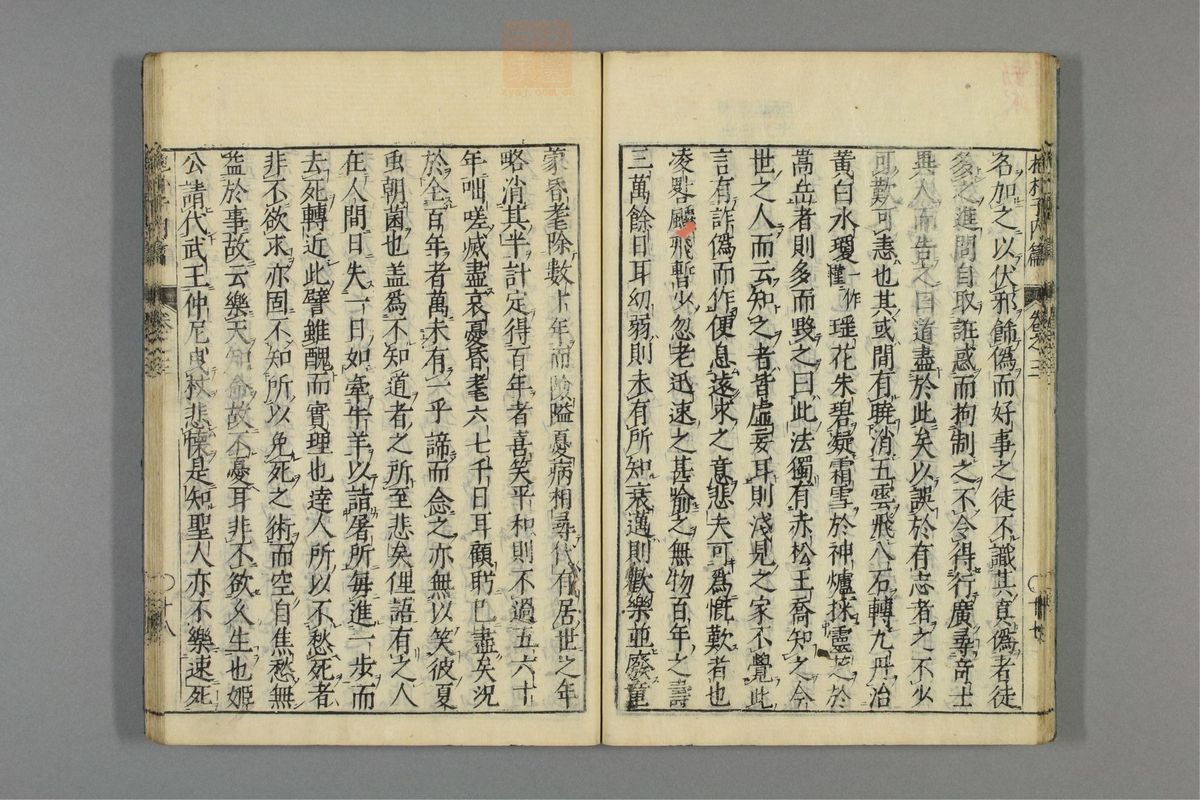 抱朴子內篇 卷之三 ○十七
名加之以伏邪飾偽而好事之徒不識其真偽者徒
多之進問自取誑惑而拘制之不令得行廣尋奇士
異人而告之曰道盡於此矣以誤於有志者之不少
可歎可恚也其或聞有曉消五雲飛八石轉九丹治
黃白水瓊瑤花朱碧凝霜雪於神爐採靈芝於
嵩岳者則多而毀之曰此法獨有赤松王喬知之今
世之人而云知之者皆虛妄耳則淺見之家不覺此
言有詐偽而作便息遠求之意悲夫可為慨歎者也
凌晷飈飛暫少忽老迅速之甚喻之無物百年之壽
三萬餘日耳幼弱則未有所知衰邁則歡樂並廢童
蒙昏耄除數十年而險隘憂病相尋代有居世之年
略消其半計定得百年者喜笑平和則不過五六十
年咄嗟滅盡哀憂昏耄六七千日耳顧眄已盡矣況
於全百年者萬未有一乎諦而念之亦無以笑彼夏
虫朝菌也盖為不知道者之所至悲矣俚語有之人
在人間日失一日如牽牛羊以詣屠所每進一步而
去死轉近此譬雖醜而實理也達人所以不愁死者
非不欲求亦固不知所以免死之術而空自焦愁無
益於事故云樂天知命故不憂耳非不欲久生也姬
公請代武王仲尼曳杖悲懷是知聖人亦不樂速死
卷之三 ○十八